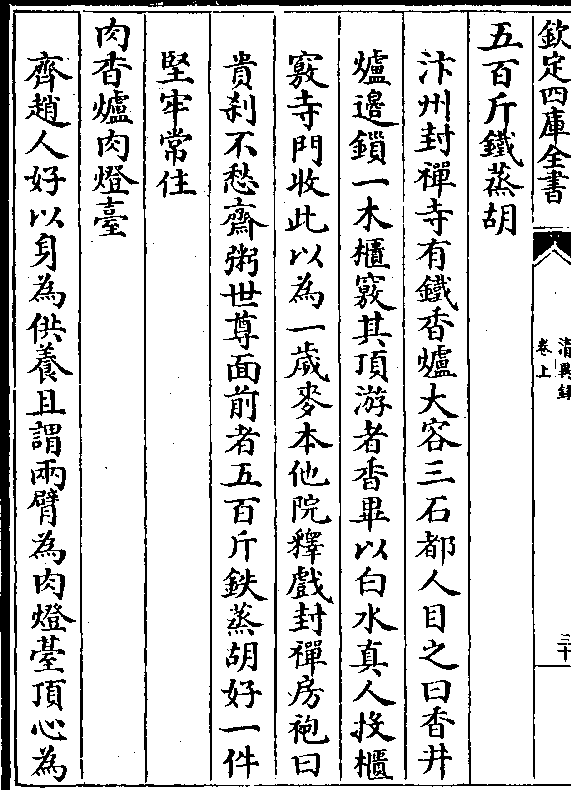 欽定四庫全書
清異錄
卷上
三十
五百斤鐵蒸胡
汴州封禪寺有鐵香爐大容三石都人目之曰香井
爐邊鎖一木櫃竅其頂游者香畢以白水真人投櫃
竅寺門收此以為一歲麥本他院釋戲封禪房袍曰
貴刹不愁齋粥世尊面前者五百斤鉄蒸胡好一件
堅牢常住
肉香爐肉燈臺
齊趙人好以身為供養且謂兩臂為肉燈臺頂心為